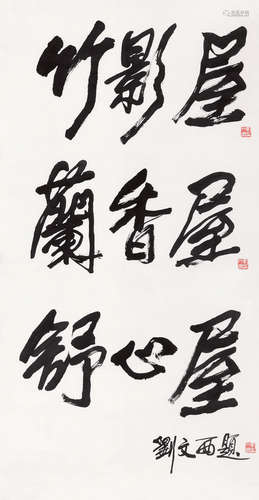 竹影屋
蘭香屋
舒心屋
劉文西題